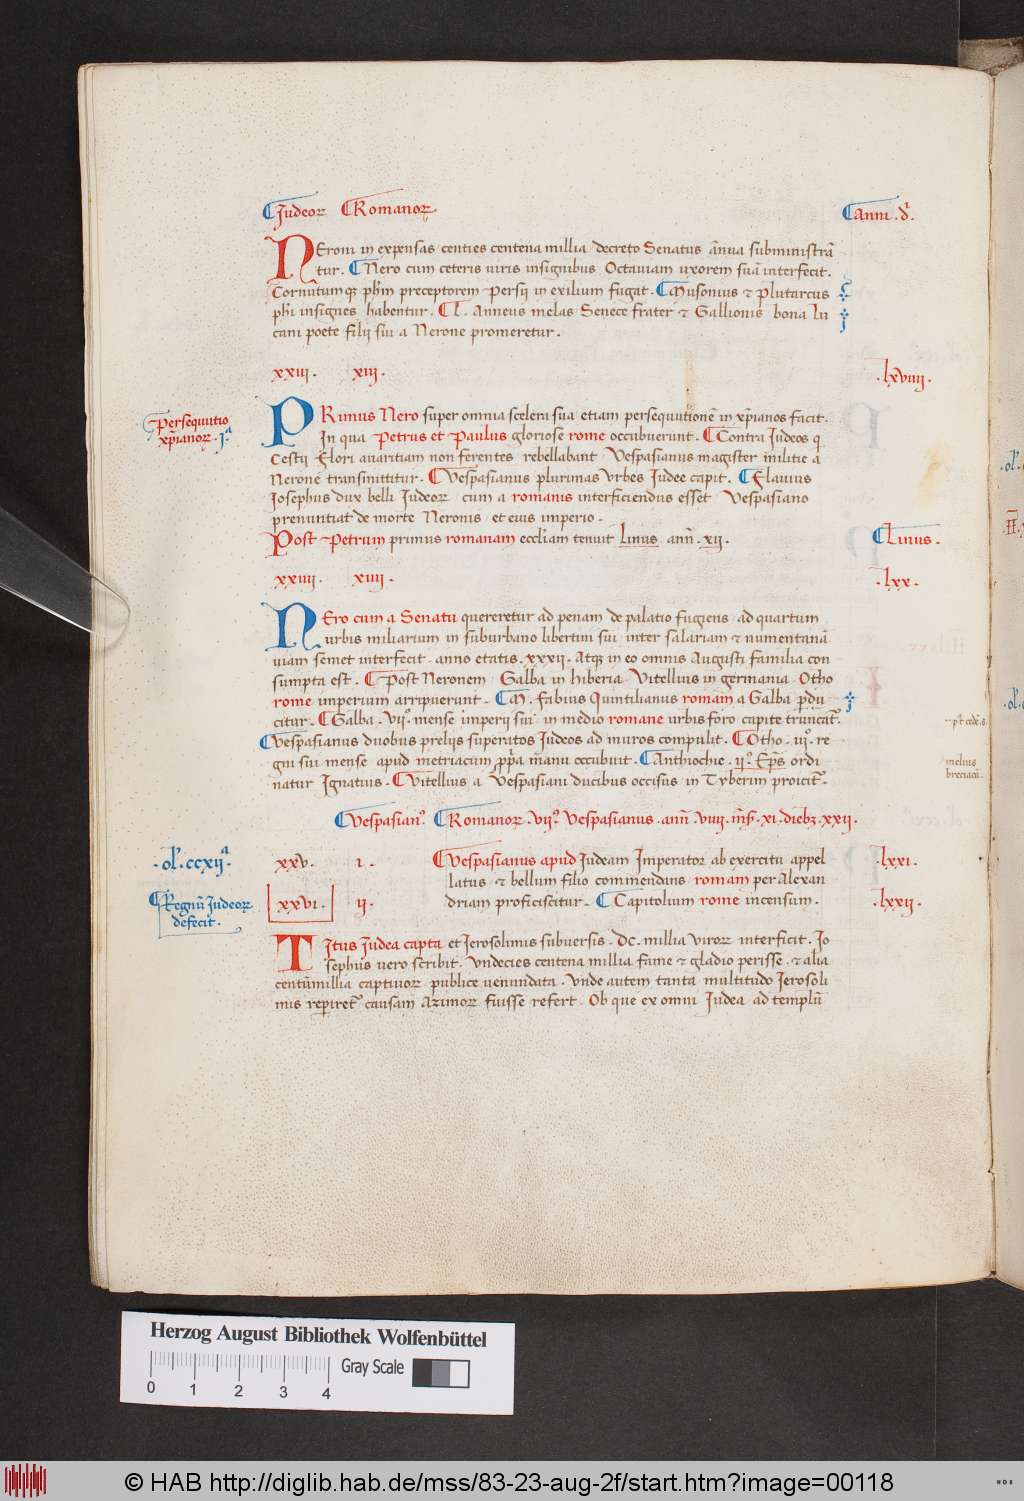 Judeoꝝ Romanoꝝ Anni .d̓.
NEroni in expensas centies centena millia decreto Senatus ānua subministrā
tur. Nero cum ceteris uiris insignibus Octauiam uxorem suā interfecit.
Cornūtumqꝫ ph̄m preceptorem Persii in exilium fugat. Musonius ⁊ Plutarcus
ph̄i insignes habentur. L. Anneus melas Senece frater ⁊ Gallionis bona Lu
cani poete filii sui a Nerone promeretur.
xxiii. xiii. .lxviiii.
Persequutio
xp̄ianoꝝ .iᵃ
PRimus Nero super omnia scelera sua etiam persequutionē in xp̄ianos facit.
In qua Petrus et Paulus gloriose rome occubuerunt. Contra Judeos q
Cestii Flori auaritiam non ferentes rebellabant Vespasianus magister militie a
Nerone transmittitur. Vespasianus plurimas Vrbes Iudee capit. Flauius
Iosephus dux belli Iudeoꝝ cum a romanis interficiendus esset Vespasiano
prenuntiat de morte Neronis et eius imperio.
Post Petrum primus romanam eccl̄iam tenuit Linus ann̄. xii. Linus.
xxiiii xiiii. .lxx.
NEro cum a Senatu quereretur ad penam de palatio fugiens ad quartum
urbis miliarium in suburbano libertini sui inter salariam ⁊ numentanā
uiam semet interfecit anno etatis .xxxii. Atqꝫ in eo omnis Augusti familia con
sumpta est. Post Neronem Galba in hiberia Vitellius in germania Otho
rome imperium arripuerunt. M. Fabius Quintilianus romam a Galba p̱du
citur. Galba .vii°. mense imperii sui in medio romane urbis foro capite trūncat᷑.
Vespasianus duobus preliis superatos Iudeos ad muros compulit. Otho .iii°. re
gni sui mense apud metriacum pp̄a manu occubuit. Anthiochie .ii°. Ep̄s ordi
natur Ignatius. Vitellius a Vespasiani ducibus occisus in Tyberim proicit᷑.
Vespasian⁹. Romanoꝝ .vii°. Vespasianus .ann̄. viiii .m̄s. xi. diebꝫ. xxii.
.ol̓. ccxiiᵃ. xxv. i. Vespasianus apud Iudeam Imperator ab exercitu appel .lxxi.
latus ⁊ bellum filio commendans romam per Alexan
Regnū Judeoꝝ
defecit. xxvi. ii. driam proficiscitur. Capitolium rome incensum. .lxxii.
TItus Judea capta et Ierosolimis subuersis .DC. millia Viroꝝ interficit. Io
sephus uero scribit. Vndecies centena millia fame ⁊ gladio perisse ⁊ alia
centūmillia captiuoꝝ publice uenundata. Vnde autem tanta multitudo Ierosoli
mis rep̱iret᷑ causam Azimoꝝ fuisse refert. Ob que ex omni Iudea ad templū
Herzog August Bibliothek Wolfenbüttel
Gray Scale
0 1 2 3 4
© HAB http://diglib.hab.de/mss/83-23-aug-2f/start.htm?image=00118